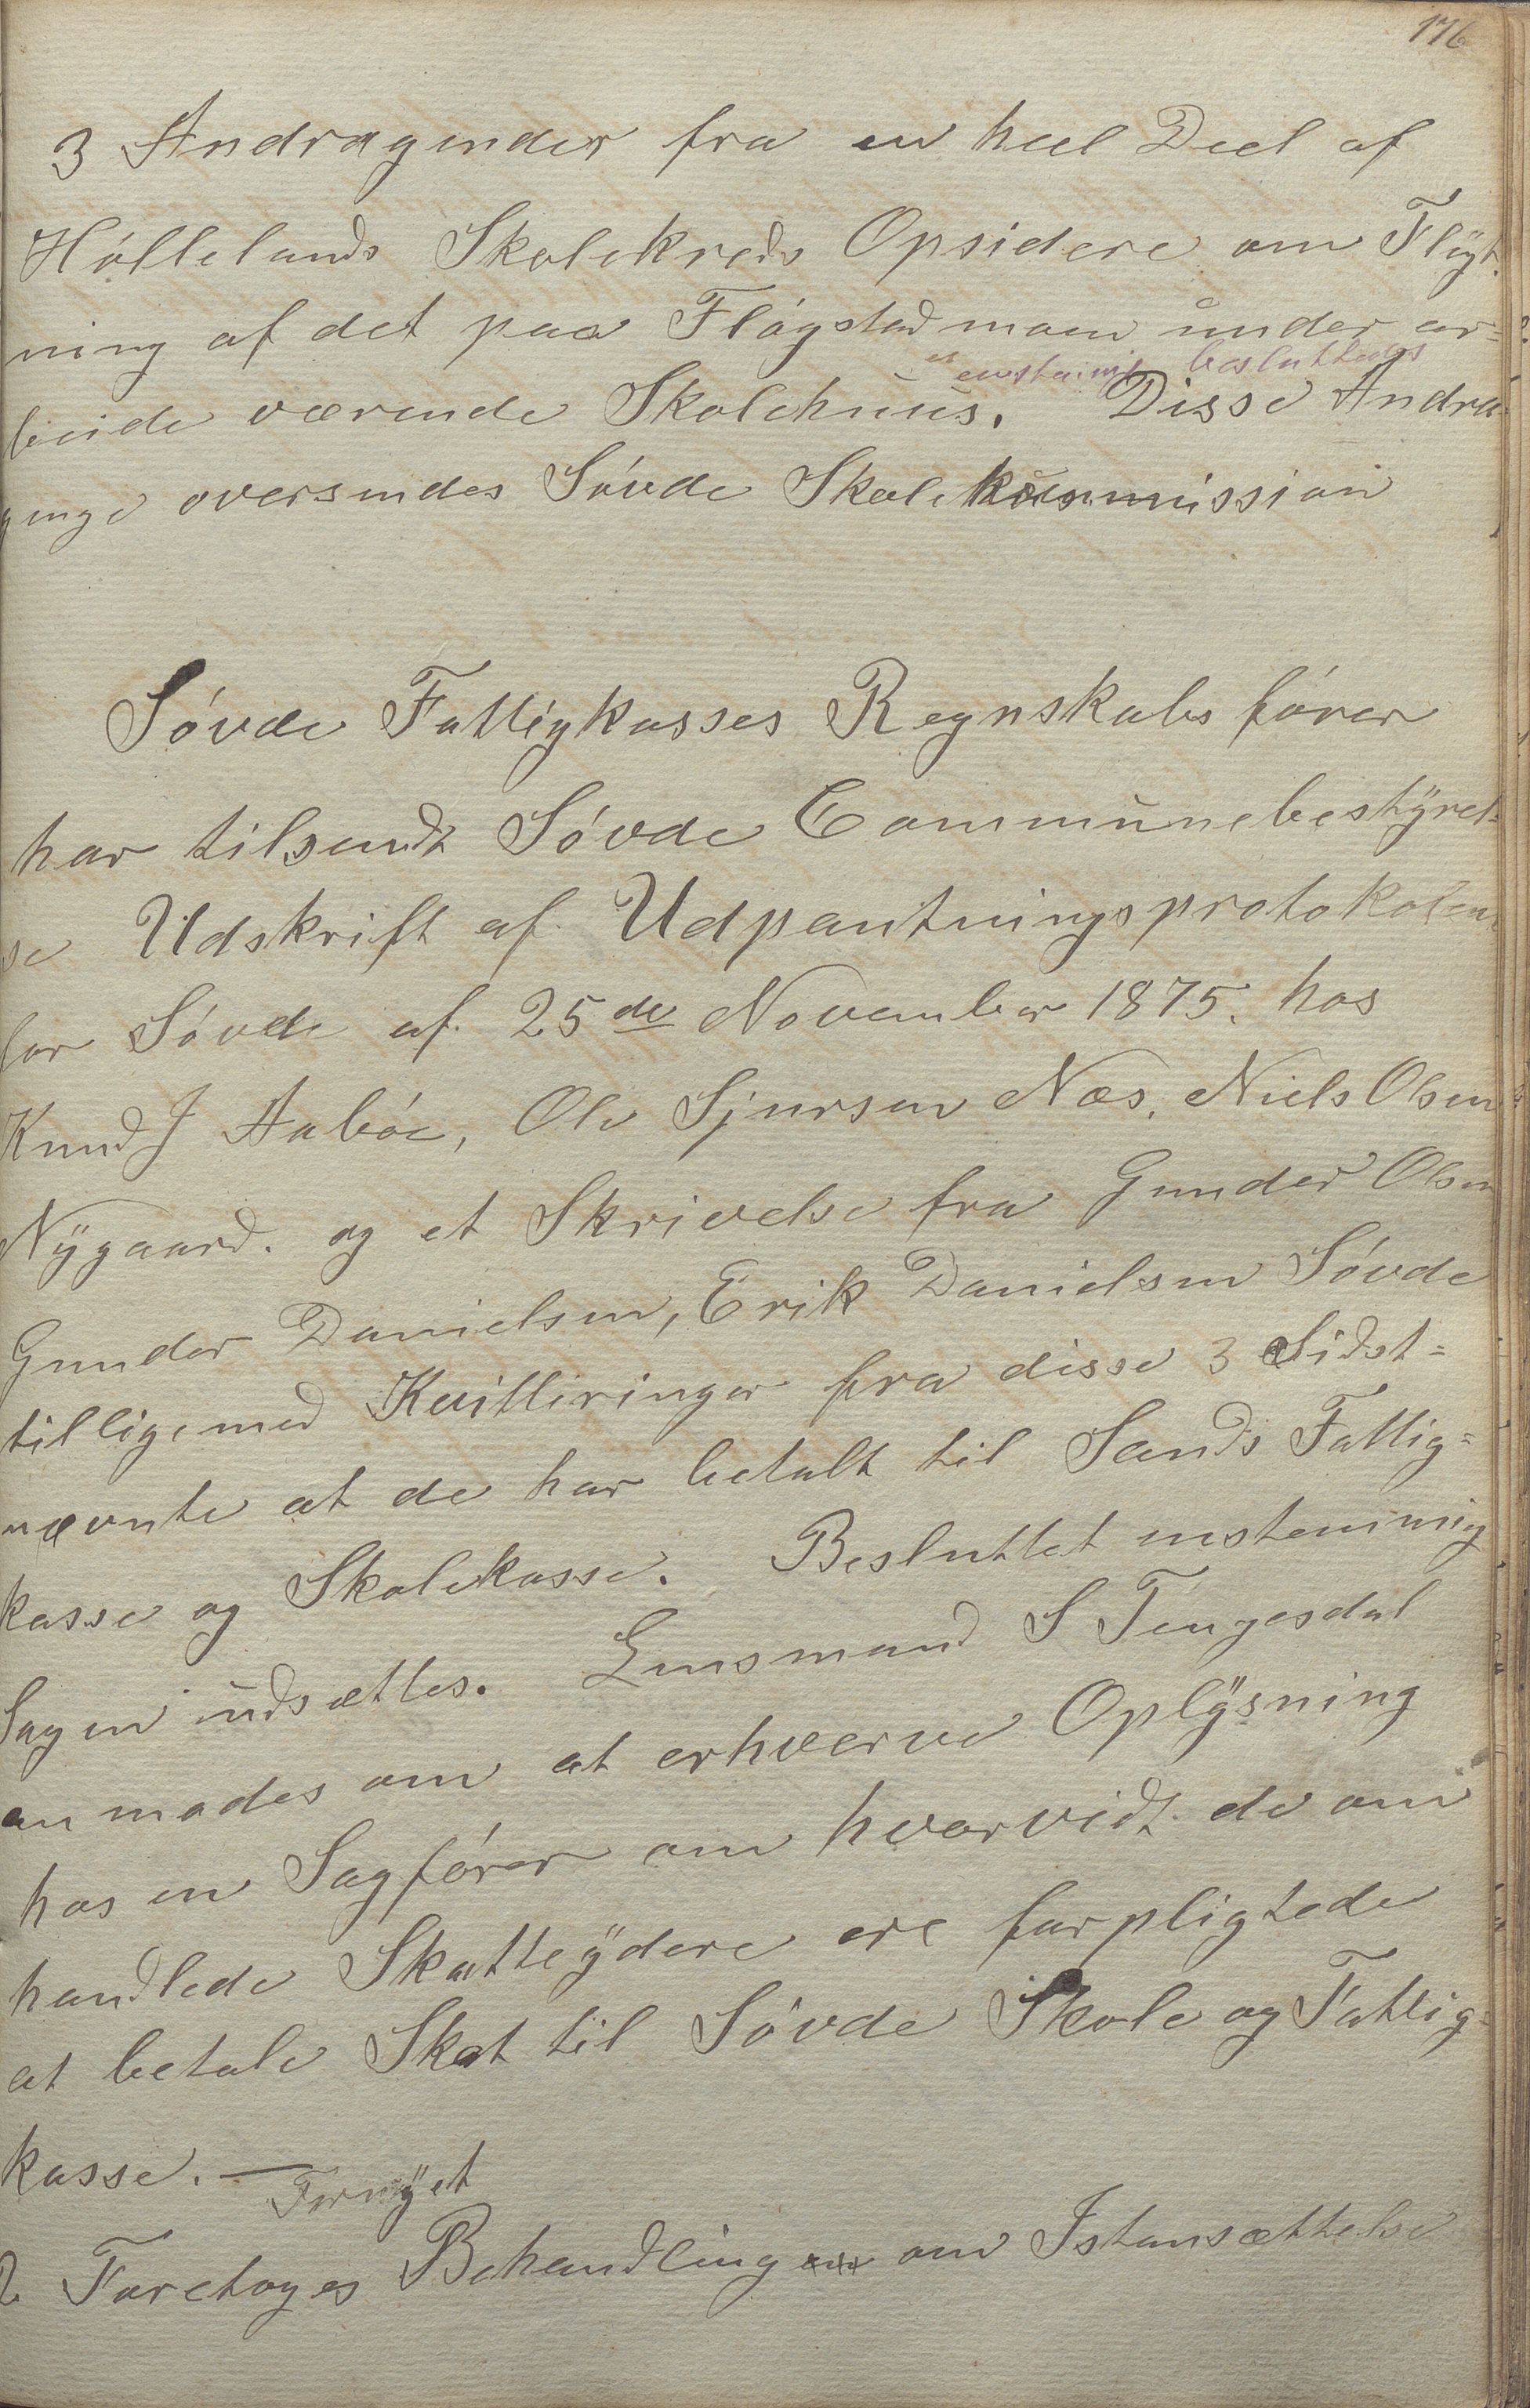 176
3 Andragender fra en heel Deel af
Høllelands Skolekreds Opsidere om Flyt-
ning af det paa Fløgstadmoen under ar-
enstemig besluttedes
beide værende Skolehuus. Disse Andra
genge oversendes Søvde Skolekommission
Søvde Fattigkasses Regnskabsfører
har tilsendt Søvde Communebestyrel-
se Udskrift af Udpantningsprotokolen
for Søvde af 25de November 1875. hos
Knud J Aabøe, Ole Sjursen Næs, Niels Olsen
Nygaard. og et Skrivelse fra Gunder Olsen
Gunder Danielsen, Erik Danielsen Søvde
tilligemed Kvitteringer fra disse 3 Sidst-
nævnte at de har betalt til Sands Fattig-
kasse og Skolekasse. Besluttet enstemmig
Sagen udsættes. Lensmand S Tengesdal
anmodes om at erhverve Oplysning
hos en Sagfører om hvorvidt de om
handlede Skatteydere ere forpligtede
at betale Skat til Søvde Skole og Fattig-
kasse. —
Fornyet
2 Foretoges Behandling om Istansættelse